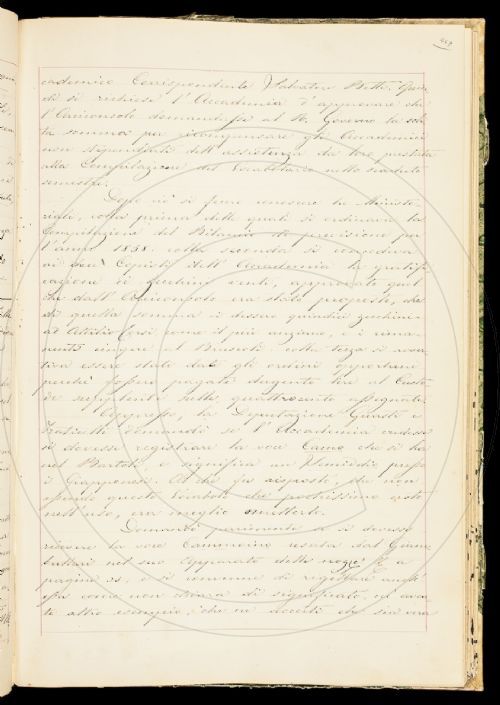 cademico Corrispondente Salvatore Betti. Quin
di si richiese l'Accademia d'approvare che
l'Arciconsolo domandasse al R. Governo la soli
ta somma per ricompensare gli Accademici
non stipendiati dell'assistenza da loro prestata
alla Compilazione del Vocabolario nello scaduto
semestre.
Dopo ciò si fecero conoscere tre Ministe
riali, colla prima delle quali si ordinava la
Compilazione del Bilancio di previsione per
l'anno 1858. colla seconda si concedeva
ai due Copisti dell'Accademia la gratifi
cazione di zecchini venti, approvato quel
che dall'Arciconsolo era stato proposto, che
di quella somma si dessero quindici zecchini
ad Attilio come il più anziano, e i rima
nenti cinque al colla terza si avver
tiva essere stati dati gli ordini opportuni
perchè fossero pagati dugento lire al Custo
de sulle quattrocento assegnate.
Appresso, la Deputazione
domandò se l'Accademia credesse
si dovesse registrare la voce Camo che si ha
nel Bartoli e significa un presso
i Giapponesi. Al che fu risposto, che non
essendo questo Vocabolo che pochissimo
nell'uso, era meglio ometterlo.
Domandò parimente se si dovesse
ricevere la voce Cammerino usata dal Giam
bullari nel suo Apparato delle nozze a
pagine 33, e si convenne di rigettare anch'
essa come non sicura di significato, ed
te altro esempio, che ne accerti che sia vera